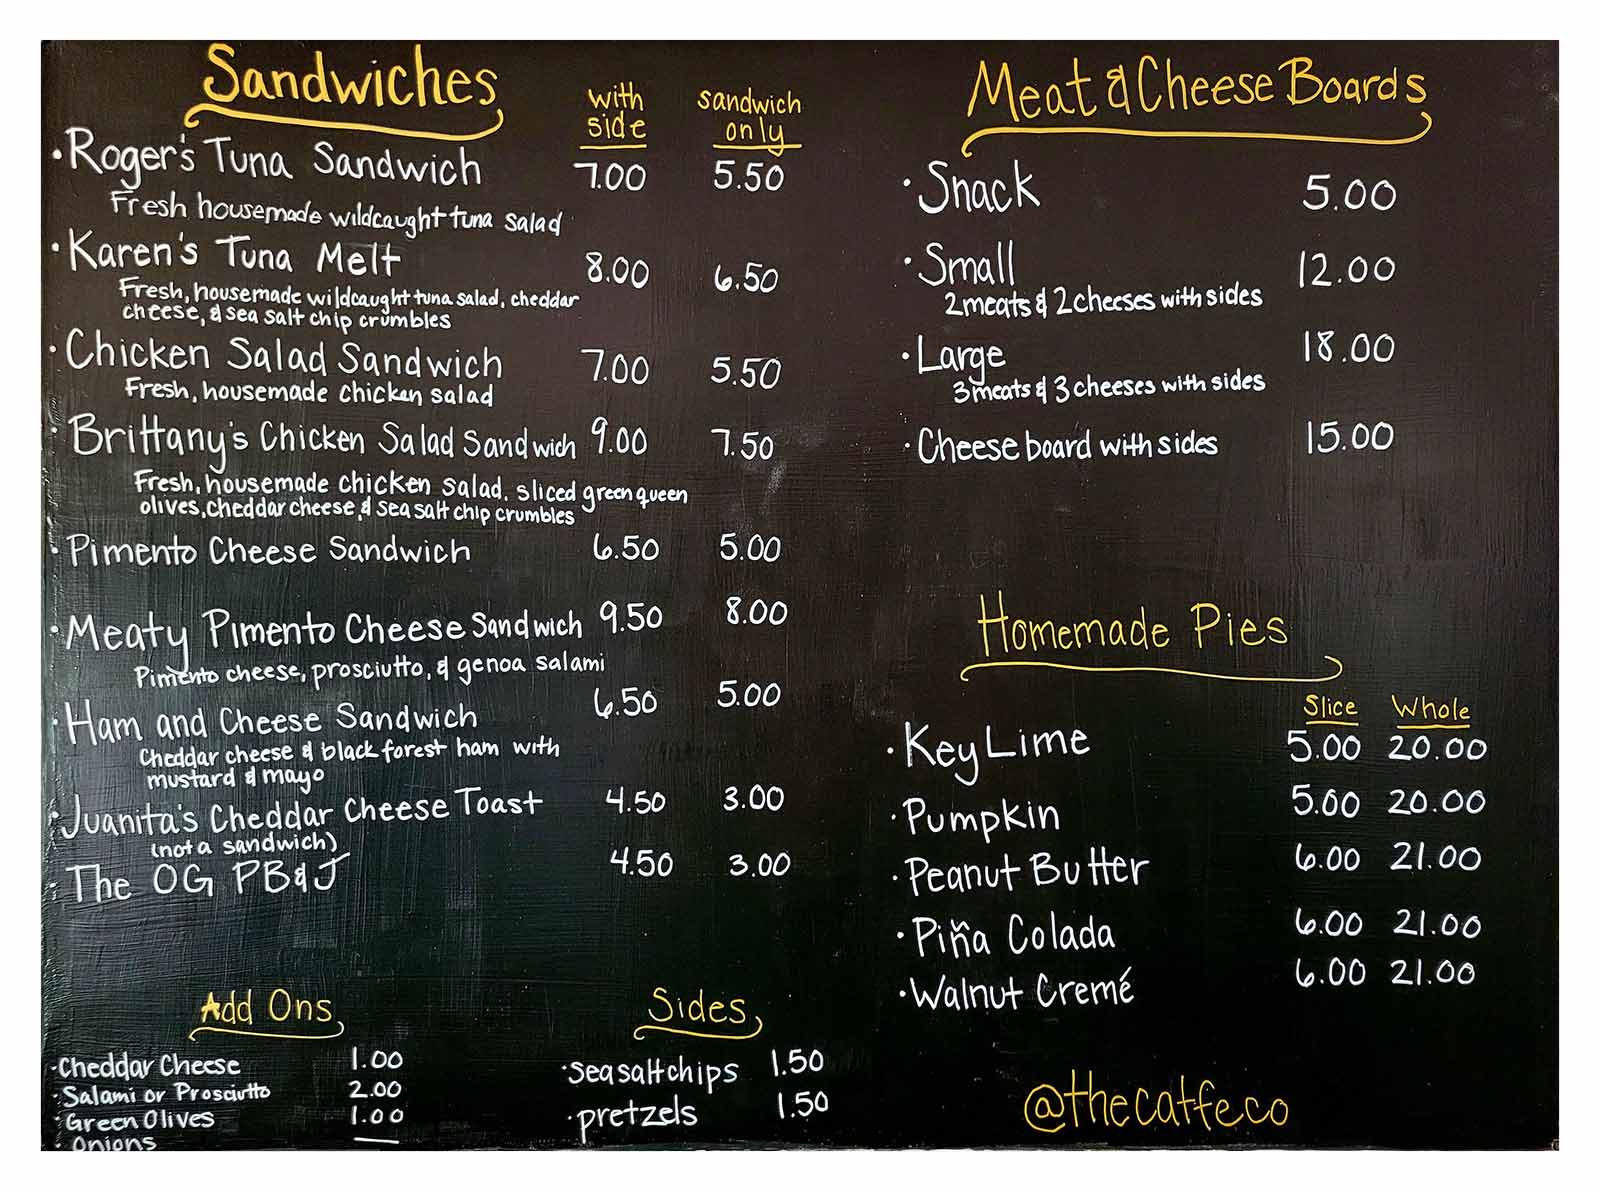 Sandwiches
with side
sandwich only
• Roger's Tuna Sandwich 7.00 5.50
Fresh housemade wildcaught tuna salad
• Karen's Tuna Melt 8.00 6.50
Fresh, housemade wildcaught tuna salad, cheddar
cheese, & sea salt chip crumbles
• Chicken Salad Sandwich 7.00 5.50
Fresh, housemade chicken salad
• Brittany's Chicken Salad Sandwich 9.00 7.50
Fresh, housemade chicken salad, sliced green queen
olives, cheddar cheese, & sea salt chip crumbles
• Pimento Cheese Sandwich 6.50 5.00
• Meaty Pimento Cheese Sandwich 9.50 8.00
Pimento cheese, prosciutto, & genoa salami
• Ham and Cheese Sandwich 6.50 5.00
Cheddar cheese & black forest ham with
mustard & mayo
• Juanita's Cheddar Cheese Toast 4.50 3.00
(not a sandwich)
• The OG PB&J 4.50 3.00
Add Ons
• Cheddar Cheese 1.00
• Salami or Prosciutto 2.00
• Green Olives 1.00
• Onions
Sides
• sea salt chips 1.50
• pretzels 1.50
Meat & Cheese Boards
• Snack 5.00
• Small 12.00
2 meats & 2 cheeses with sides
• Large 18.00
3 meats & 3 cheeses with sides
• Cheese board with sides 15.00
Homemade Pies
Slice Whole
• Key Lime 5.00 20.00
• Pumpkin 5.00 20.00
• Peanut Butter 6.00 21.00
• Piña Colada 6.00 21.00
• Walnut Cremé 6.00 21.00
@thecatfeco